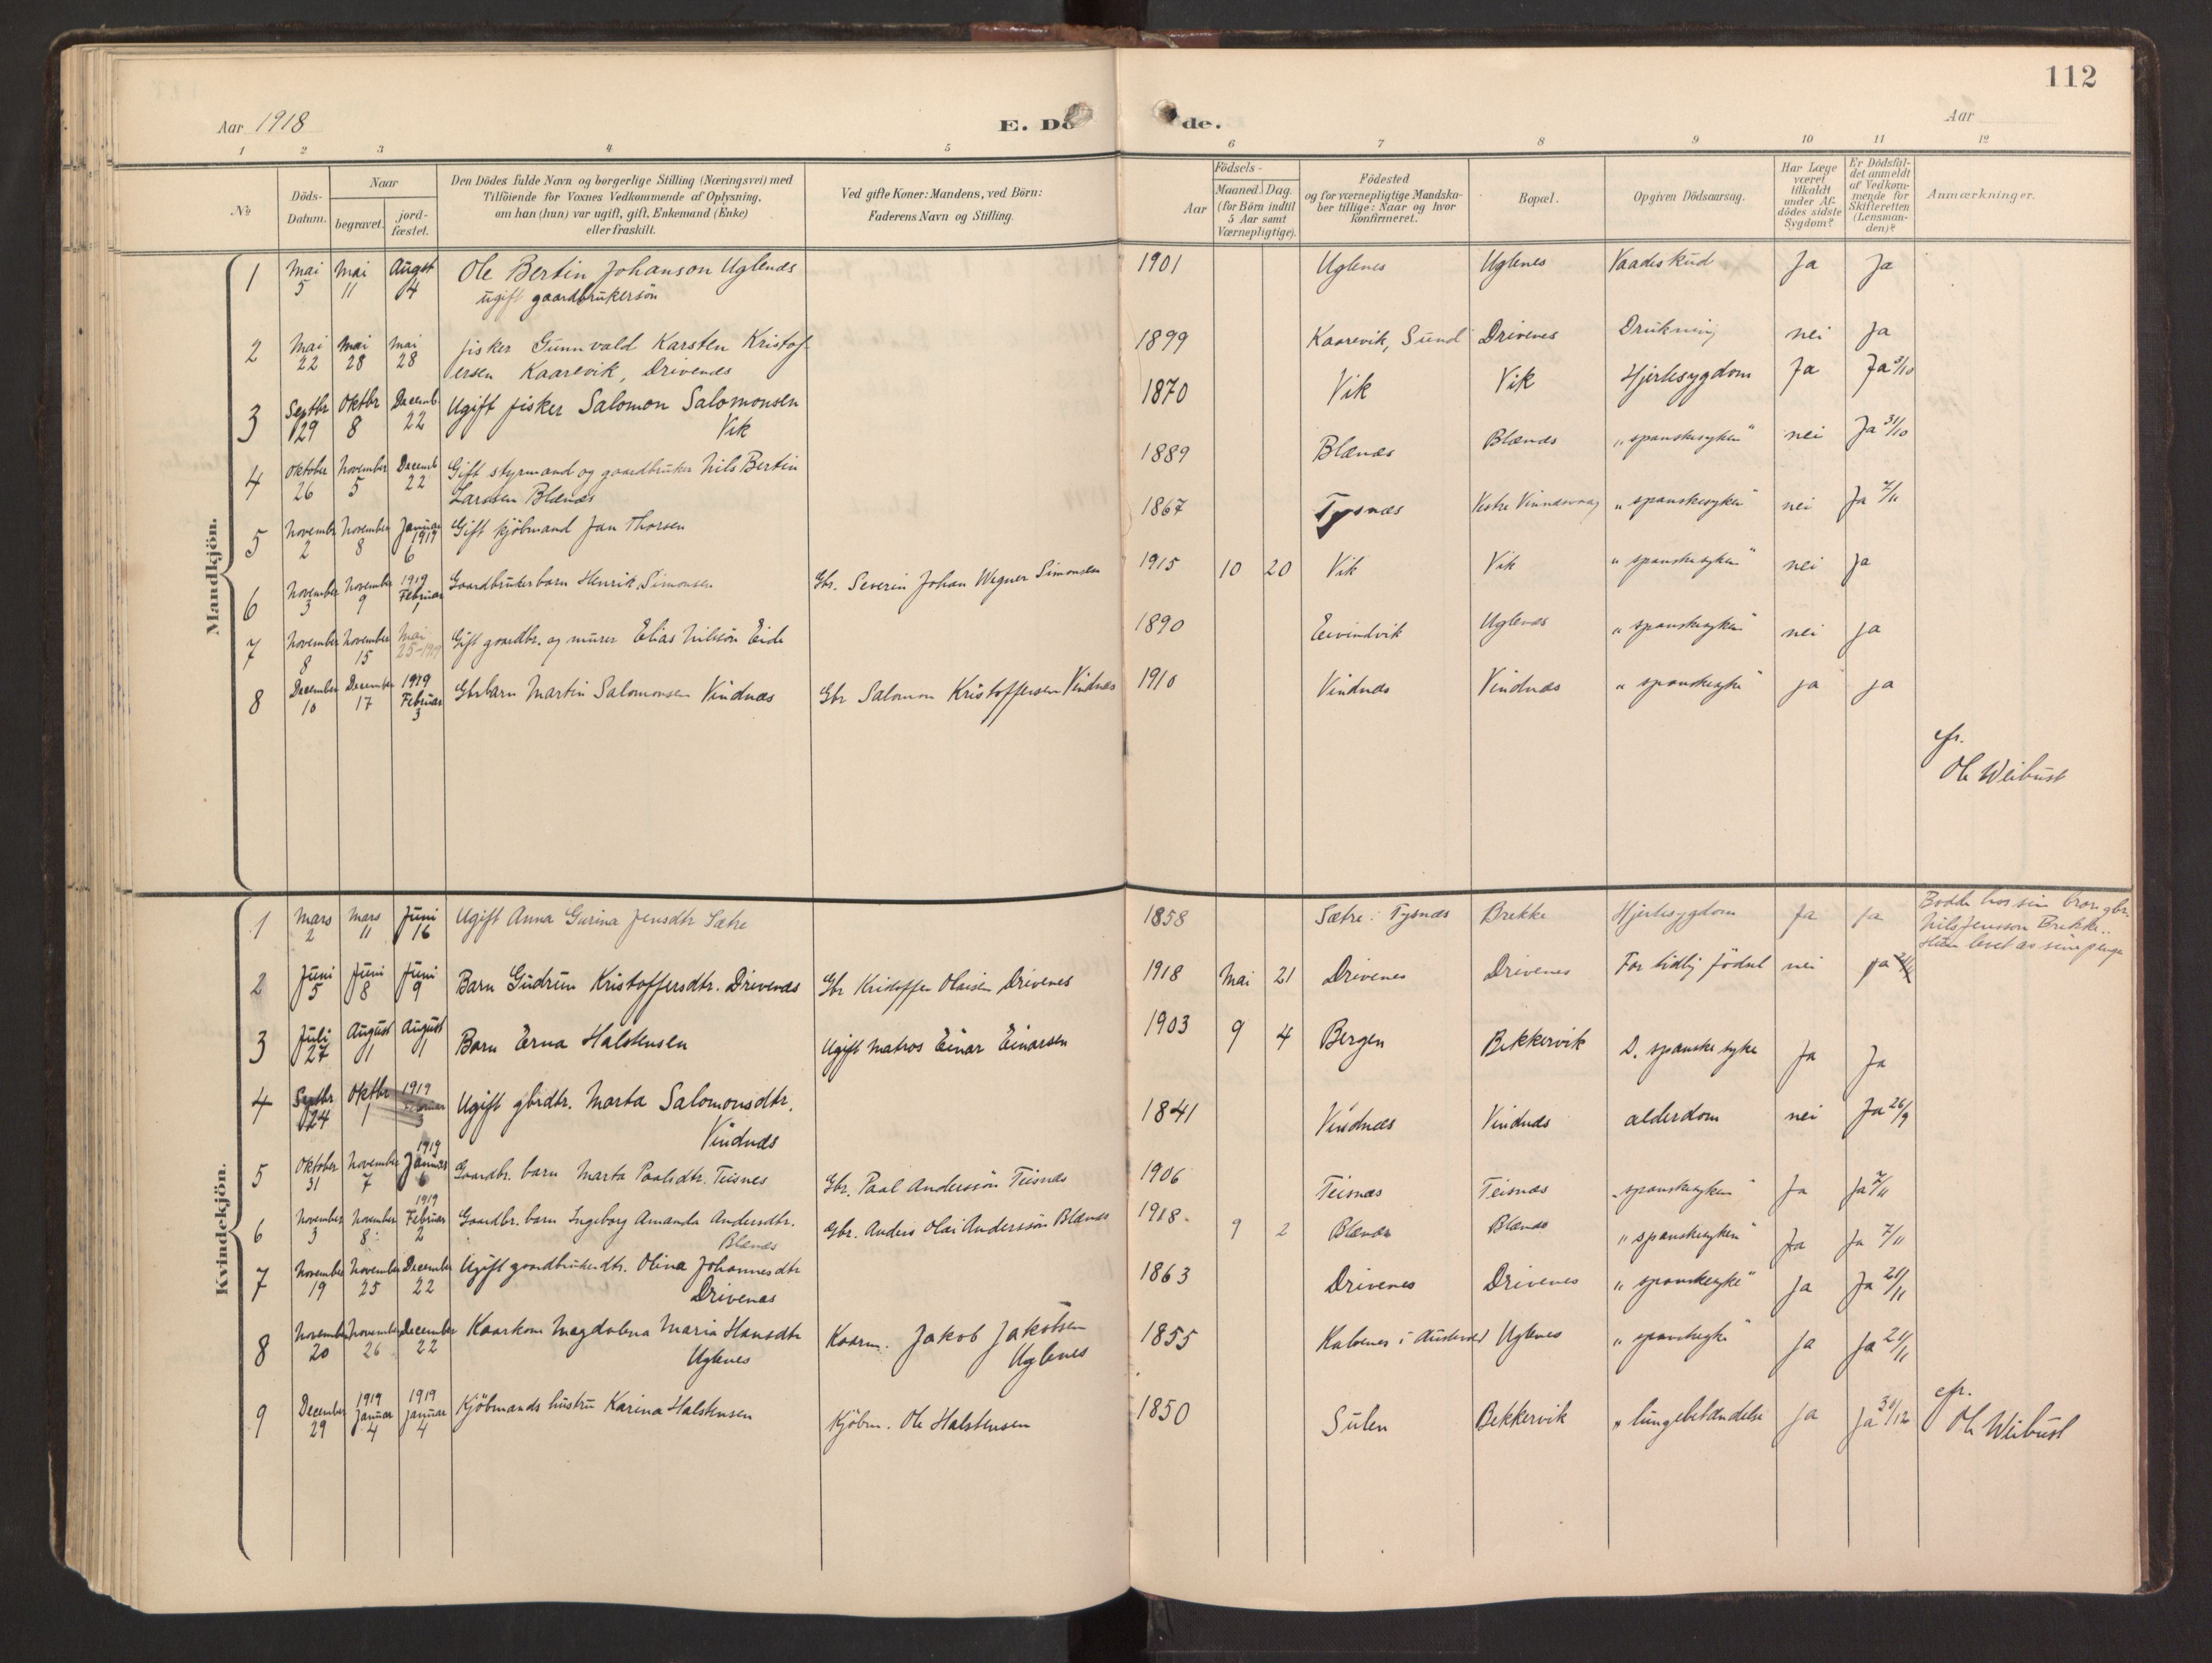 112
Aar 1918
E. Dö de.
Aar
1 2 3 4 5 6 7 8 9 10 11 12
No
Döds-Datum.
Naar
begravet.
jord-fæstet.
Den Dödes fulde Navn og borgerlige Stilling (Næringsvei) med
Tilföiende for Voxnes Vedkommende af Oplysning,
om han (hun) var ugift, gift, Enkemand (Enke)
eller fraskilt.
Ved gifte Koner: Mandens, ved Börn:
Faderens Navn og Stilling.
Födsels-
Aar
Maaned. Dag.
(for Börn indtil
5 Aar samt
Værnepligtige).
Födested
og for værnepligtige Mandska-
ber tillige: Naar og hvor
konfirmeret.
Bopæl.
Opgiven Dödsaarsag.
Har Læge
været
tilkaldt
under Af-
dödes sidste
Sygdom?
Er Dödsfal-
det anmeldt
af Vedkom-
mende for
Skifteretten
(Lensman-
den)?
Anmærkninger.
Mandkjön.
1 Mai 5 Mai 11 Augst 4 Ole Bertin Johanson Uglenæs 1901 Uglenes Uglenes Vaadeskud Ja Ja
ugift gaardbrukersön
2 Mai 22 Mai 28 Mai 28 fisker Gunnvald Karsten Kristof- 1899 Kaarevik, Sund Drivenes Drukning nei Ja
ersen Kaarevik, Drivenes
3 Septbr 29 Oktbr 8 Decemb 22 Ugift fisker Salomon Salomonsen 1870 Vik Vik Hjertesygdom Ja Ja 3/10
Vik
4 Oktober 26 November 5 Decemb 22 Gift styrmand og gaardbruker Nils Bertin 1889 Blænæs Blænæs "spanskesyken" nei Ja 31/10
Larssen Blænæs
5 November 2 November 8 Januar 1919 6 Gift kjöbmand Jan Thorsen 1867 Tysnæs Vestre Vinnæsvaag "spanskesyken" nei Ja 7/11
6 November 3 November 9 1919 Februar 1 Gaardbrukerbarn Henrik Simonsen Gbr. Severin Johan Wegner Simonsen 1915 10 20 Vik Vik "spanskesyken" nei Ja
7 November 8 November 15 Mai 25-1919 Gift gaardbr. og murer Elias Nilsön Eide 1890 Eivindvik Uglenæs "spanskesyken" nei Ja
8 December 10 December 17 1919 Februar 3 Gbrbarn Martin Salomonsen Vindnæs Gbr Salomon Kristoffersen Vindnæs 1910 Vindnæs Vindnæs "spanskesyke" ja ja
efr.
Ole Weibust
Kvindekjön.
1 Mars 2 Mars 11 Juni 16 Ugift Anna Gurina Jensdtr Sætre 1858 Sætre i Tysnæs Brekke Hjertesygdom Ja Ja Bodde hos sin bror gbr.
Nils Jensson Brekke..
Hun levet av sine penge
2 Juni 5 Juni 8 Juni 9 Barn Gudrun Kristoffersdtr. Drivenæs Gbr Kristoffer Olaisen Drivenes 1918 Mai 21 Drivenes Drivenes For tidlig födsel nei ja
3 Juli 27 August 1 August 1 Barn Erna Halstensen Ugift matros Einar Einarsen 1903 9 4 Bergen Bekkervik D. spanske syke Ja Ja
4 Septbr 24 Oktbr 1 1919 Februar 3 Ugift gbrdtr. Marta Salomonsdtr. 1841 Vindnæs Vindnæs alderdom nei Ja 26/9
Vindnæs
5 Oktober 31 November 7 1919 Januar 6 Gaardbr. barn Marta Paalsdtr. Teisnes Gbr. Paal Anderssön Teisnæs 1906 Teisnæs Teisnæs "spanskesyken" Ja Ja 7/11
6 November 3 November 8 1919 Februar 2 Gaardbr. barn Ingeborg Amanda Andersdtr. Gbr. Anders Olai Anderssön Blænæs 1918 9 2 Blænæs Blænæs "spanskesyken" Ja Ja 7/11
Blænæs
7 November 19 November 25 December 22 Ugift gaardbrukerdtr. Olina Johannesdtr 1863 Drivenes Drivenes "spanskesyke" Ja Ja 21/11
Drivenæs
8 November 20 November 26 December 22 Kaarkone Magdalena Maria Hansdtr Kaarm. Jakob Jakobsen 1855 Kalvenes i Austevold Uglenes "spanskesyke" Ja Ja 21/11
Uglenes Uglenes
9 December 29 1919 Januar 4 1919 Januar 4 Kjöbmands hustru Karina Halstensen Kjöbm. Ole Halstensen 1850 Sulen Bekkervik "lungebetændelse Ja Ja 31/12
efr.
Ole Weibust